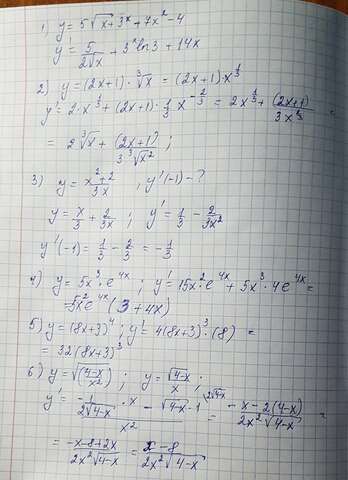 1) y = 5√x + 3ˣ + 7x² - 4
y' = 5/(2√x) + 3ˣ ln 3 + 14x
2) y = (2x+1) · ∛x = (2x+1) · x^(1/3)
y' = 2·x^(1/3) + (2x+1) · 1/3 x^(-2/3) = 2x^(1/3) + (2x+1)/(3x^(2/3)) =
= 2∛x + (2x+1)/(3∛x²) ;
3) y = (x²+2)/(3x) , y'(-1) - ?
y = x/3 + 2/(3x) ; y' = 1/3 - 2/(3x²)
y'(-1) = 1/3 - 2/3 = -1/3
4) y = 5x³ · e^(4x) ; y' = 15x² e^(4x) + 5x³ · 4e^(4x) =
= 5x² e^(4x) (3 + 4x)
5) y = (8x+3)⁴ ; y' = 4(8x+3)³ · (8) =
= 32(8x+3)³
6) y = √((4-x)/x²) ; y = √(4-x)/x ;
y' = (-1/(2√(4-x)) · x - √(4-x) · 1)/x² = (-x - 2(4-x))/(2x²√(4-x)) =
= (-x-8+2x)/(2x²√(4-x)) = (x-8)/(2x²√(4-x))